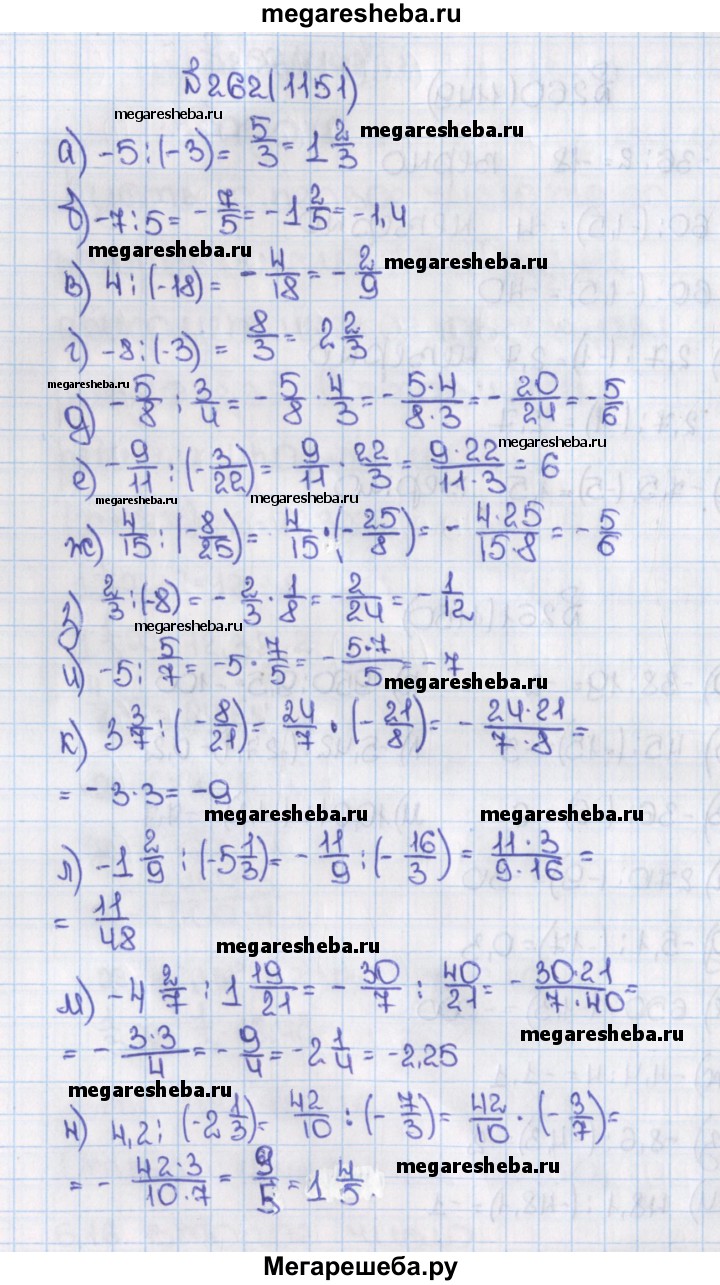 megaresheba.ru
№262(1151)
megaresheba.ru
а) -5:(-3)= 5/3 = 1 2/3
megaresheba.ru
б) -7:5= -7/5 = -1 2/5 = -1,4
megaresheba.ru
megaresheba.ru
в) 4:(-18)= -4/18 = -2/9
г) -8:(-3) = 8/3 = 2 2/3
megaresheba.ru
д) -5/8 : 3/4 = -5/8 · 4/3 = -5·4/8·3 = -20/24 = -5/6
megaresheba.ru
е) -9/11 : (-3/22) = 9/11 · 22/3 = 9·22/11·3 = 6
megaresheba.ru
megaresheba.ru
ж) 4/15 : (-8/25) = 4/15 · (-25/8) = -4·25/15·8 = -5/6
з) 2/3 : (-8) = -2/3 · 1/8 = -2/24 = -1/12
megaresheba.ru
и) -5 : 5/7 = -5 · 7/5 = -5·7/5 = -7
megaresheba.ru
к) 3 3/7 : (-8/21) = 24/7 · (-21/8) = -24·21/7·8 =
= -3·3 = -9
megaresheba.ru
megaresheba.ru
л) -1 2/9 : (-5 1/3) = -11/9 : (-16/3) = 11·3/9·16 =
= 11/48
megaresheba.ru
м) -4 2/7 : 1 19/21 = -30/7 : 40/21 = -30·21/7·40 =
megaresheba.ru
= -3·3/4 = -9/4 = -2 1/4 = -2,25
megaresheba.ru
н) 4,2 : (-2 1/3) = 42/10 : (-7/3) = 42/10 · (-3/7) =
megaresheba.ru
= -42·3/10·7 = 9/5 = 1 4/5.
Мегарешеба.ру